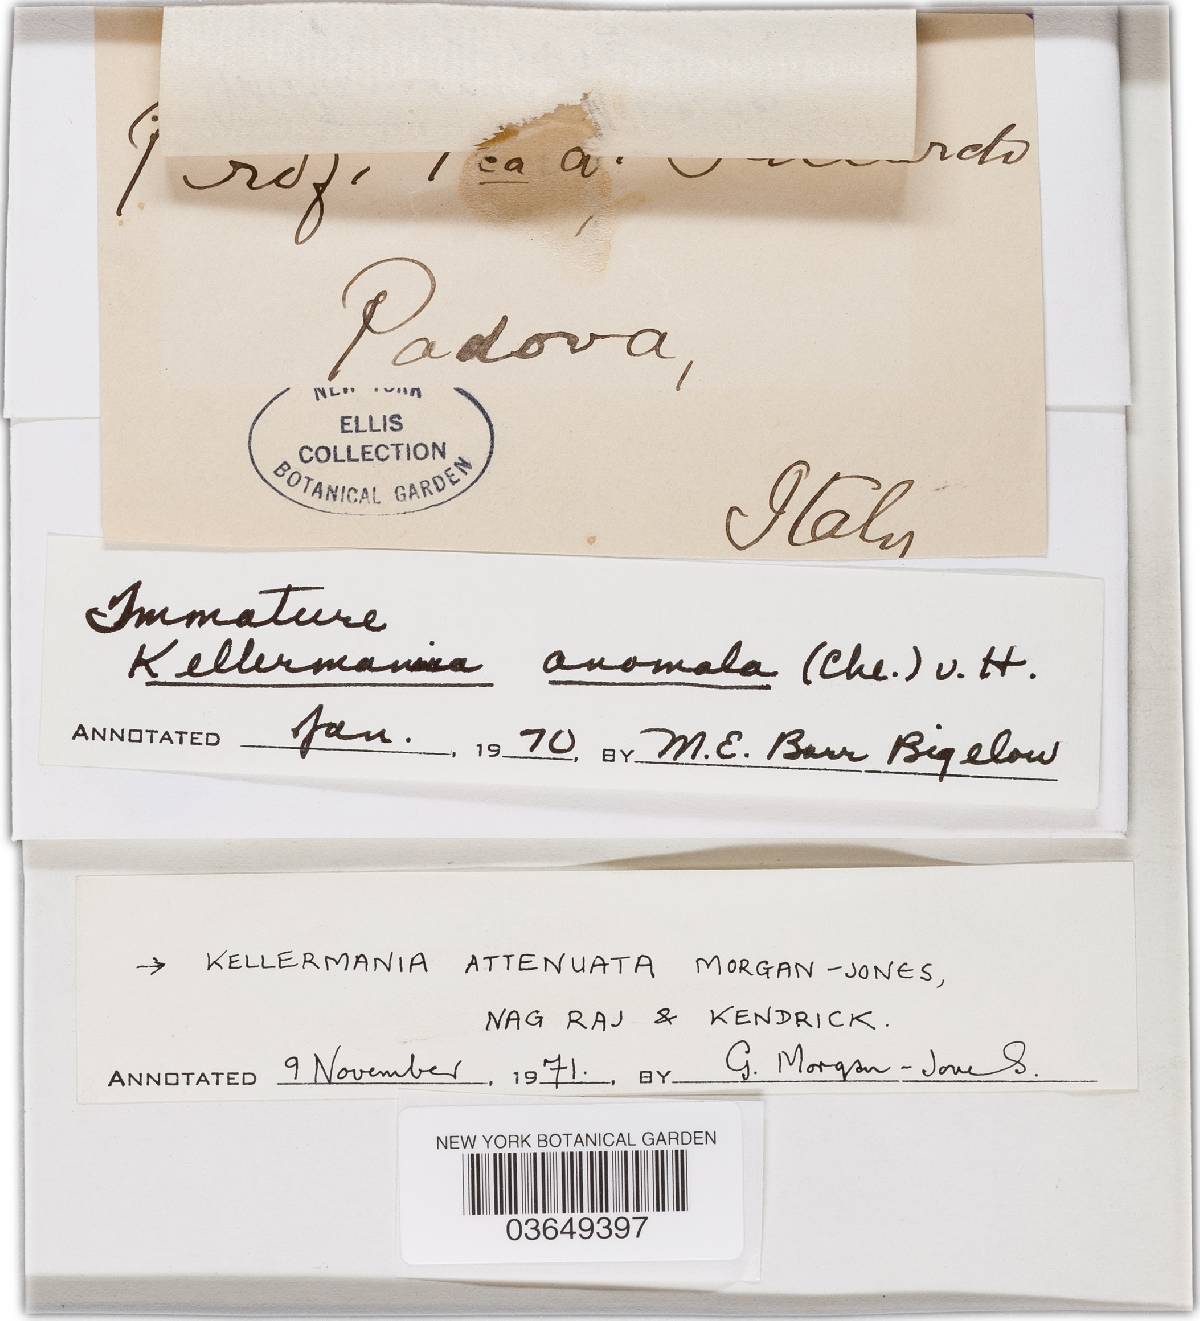 Prof.
Padova,
NEW YORK
ELLIS
COLLECTION
BOTANICAL GARDEN
Italy
Immature
Kellermania anomala (Cke.) v. H.
ANNOTATED Jan. , 1970, BY M.E. Barr Bigelow
→ KELLERMANIA ATTENUATA MORGAN-JONES,
NAG RAJ & KENDRICK.
ANNOTATED 9 November , 1971. , BY G. Morgan-Jones.
NEW YORK BOTANICAL GARDEN
03649397